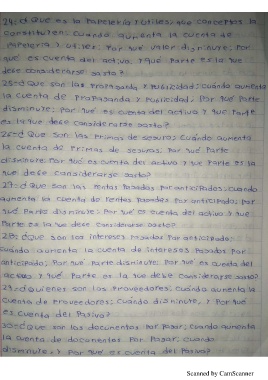 24:¿Que es la Papeleria y utiles; que conceptos la
constituyen; Cuándo aumenta la cuenta de
Papeleria y utiles, Por que valor disminuye; Por
qué es cuenta del activo, y Qué Parte es la que
debe considerarse gasto?
25:¿Que son las Propaganda y Publicidad; cuándo aumenta
la cuenta de Propaganda y Publicidad, Por que Parte
disminuye; Por que es cuenta del activo y que Parte
es la que debe considerarse gasto?
26:¿Que son las Primas de seguro; Cuándo aumenta
la cuenta de Primas de seguros, Por que Parte
disminuye, Por qué es cuenta del activo y que Parte es la
que debe considerarse gasto?
27:¿Que son las Rentas Pagadas Por anticipados; cuando
aumenta la cuenta de Rentas Pagadas Por anticipado; Por
qué Parte disminuye; Por qué es cuenta del activo y que
Parte es la que debe considerarse Gasto?
28:¿Que son los intereses Pagados Por anticipado;
cuándo aumenta la cuenta de intereses Pagados Por
anticipado, Por qué Parte disminuye; Por qué es cuenta del
activo y qué Parte es la que debe considerarse gasto?
29:¿quienes son los Proveedores; cuándo aumenta la
cuenta de Proveedores; Cuándo disminuye, y Por qué
es cuenta del Pasivo?
30:¿Que son los documentos Por Pagar; cuando aumenta
la cuenta de documentos Por Pagar; cuándo
disminuye, y Por qué es cuenta del Pasivo?
Scanned by CamScanner